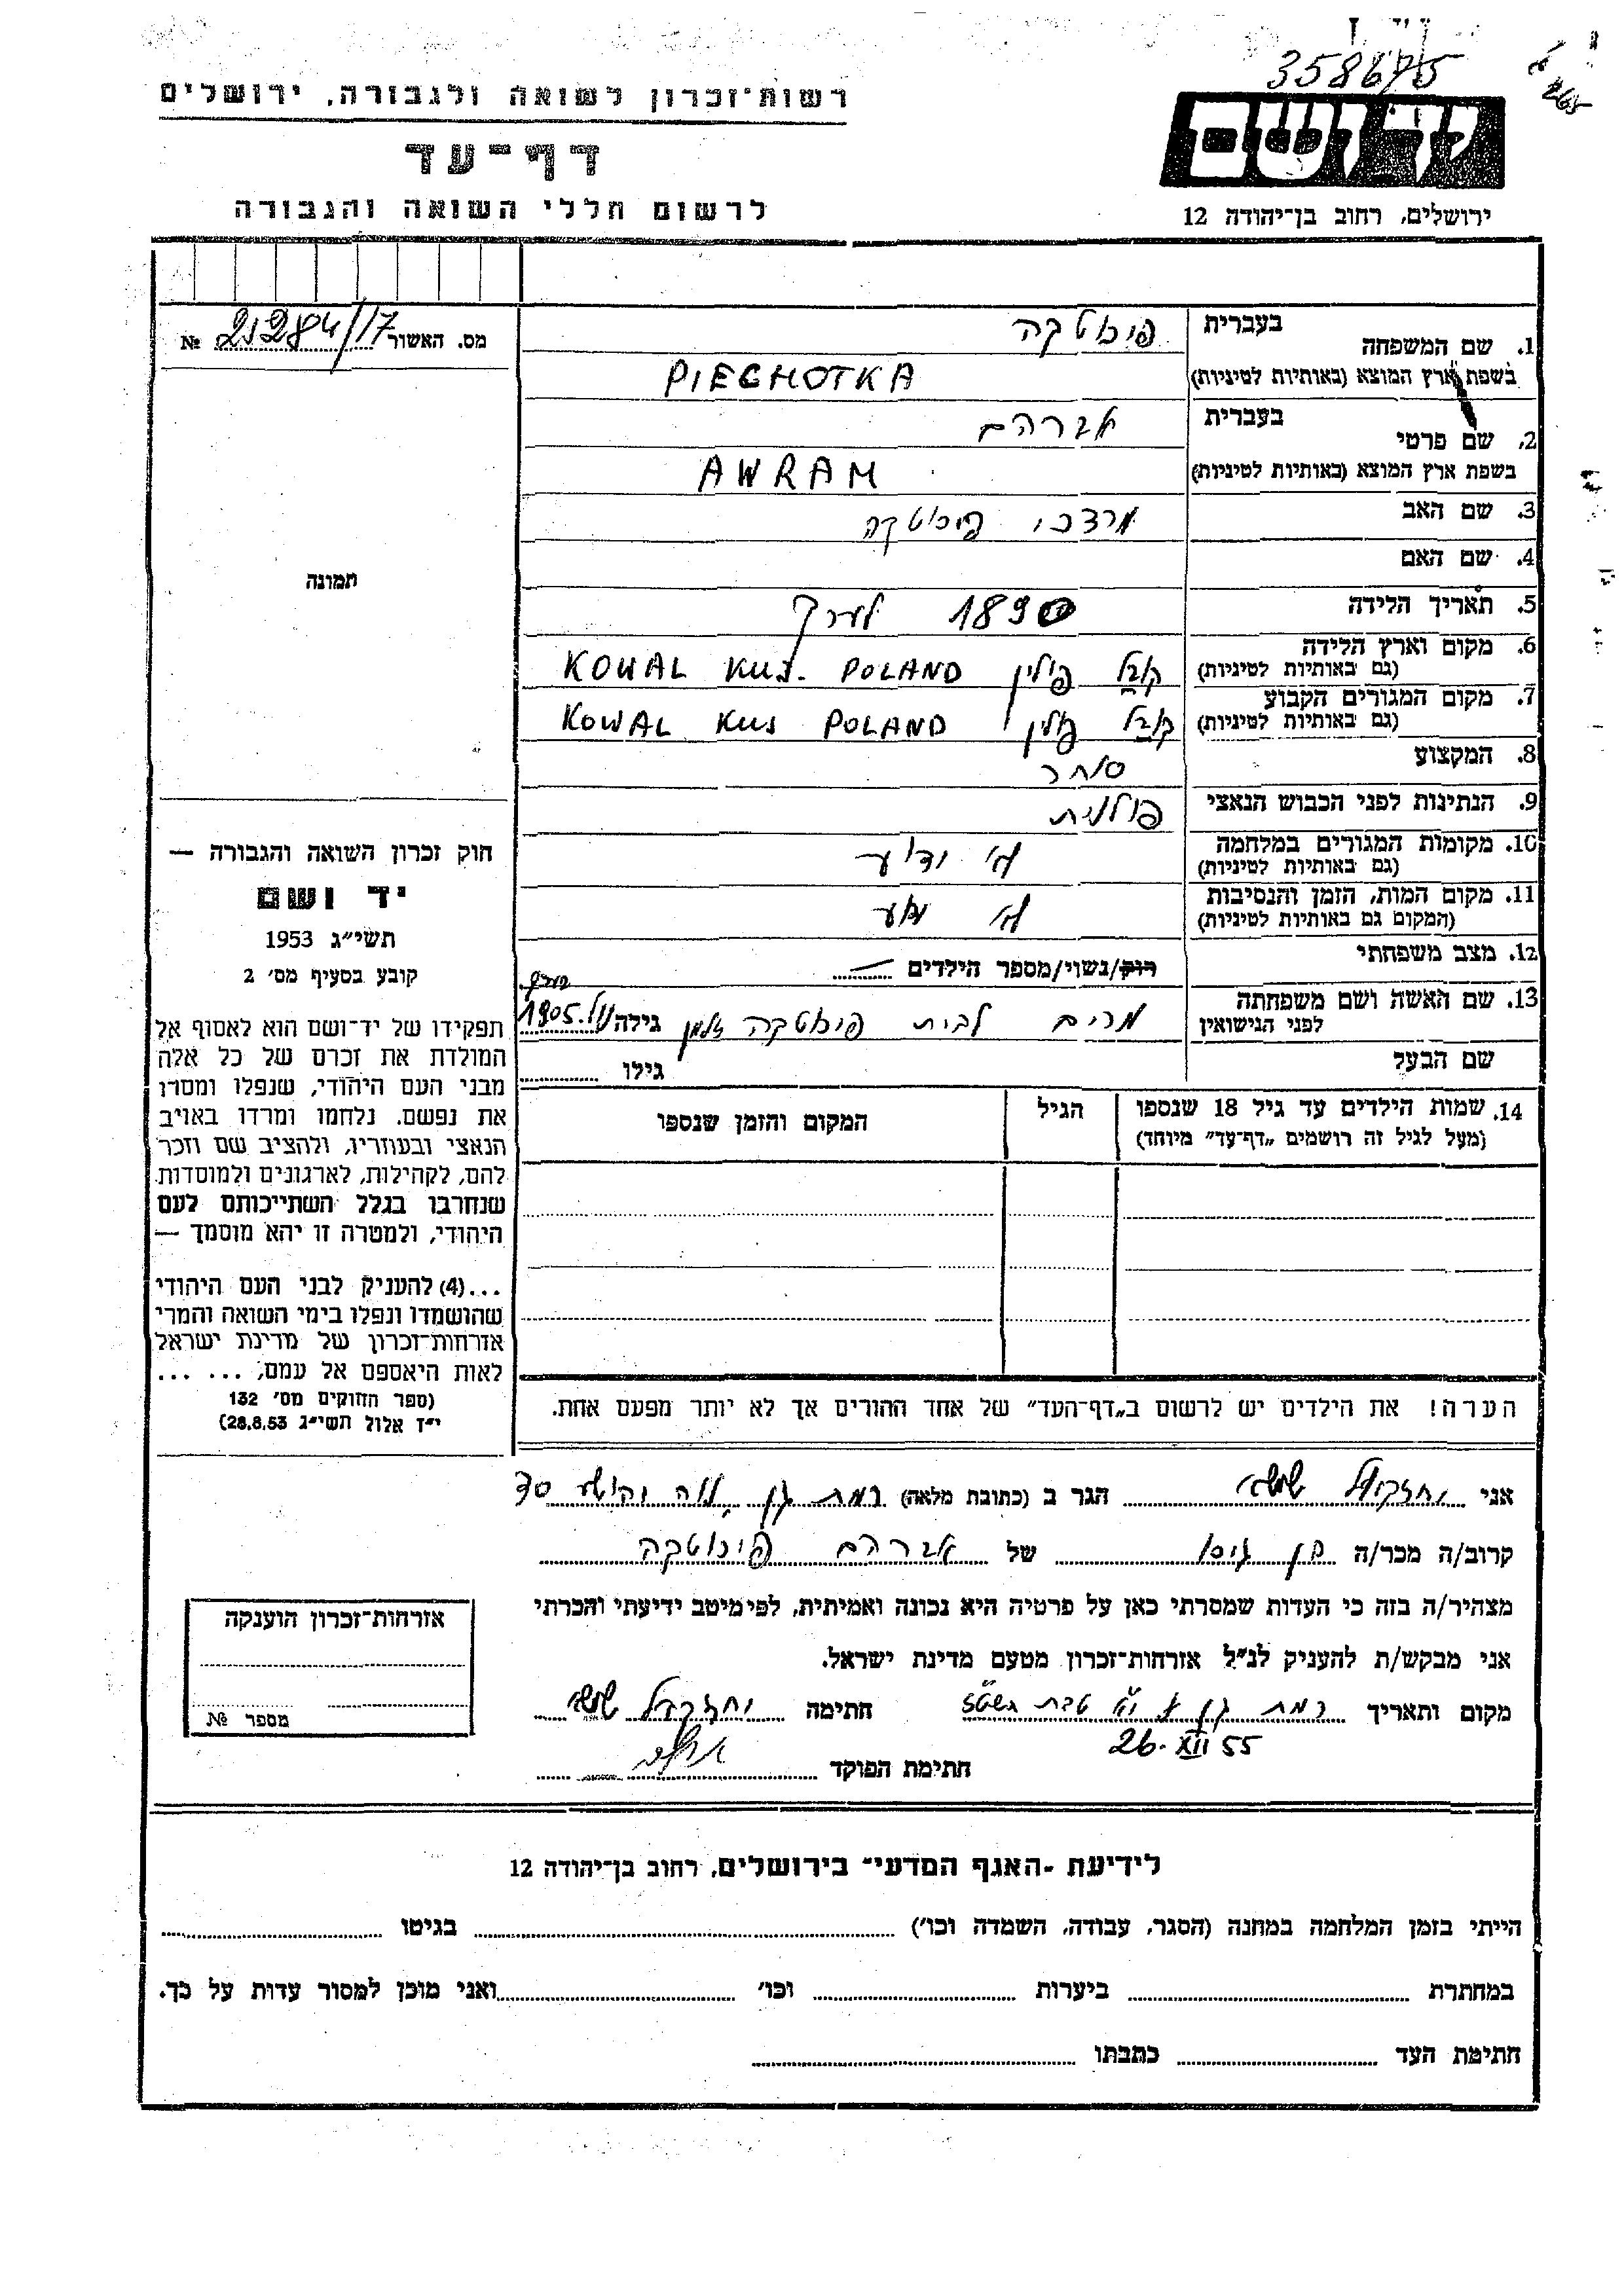 358675
רשות־זכרון לשואה ולגבורה, ירושלים
יד ושם
דף־עד
לרשום חללי השואה והגבורה
ירושלים, רחוב בן־יהודה 12
מס. האשור 21284/17 №
1. שם המשפחה בעברית פיכוטקה
בשפת ארץ המוצא (באותיות לטיניות) PIECHOTKA
2. שם פרטי בעברית אברהם
בשפת ארץ המוצא (באותיות לטיניות) AWRAM
3. שם האב מרדכי פיכוטקה
4. שם האם
5. תאריך הלידה 1890 לערך
6. מקום וארץ הלידה (גם באותיות לטיניות) קובל פולין KOWAL KUJ. POLAND
7. מקום המגורים הקבוע (גם באותיות לטיניות) קובל פולין KOWAL KUJ POLAND
8. המקצוע סוחר
9. הנתינות לפני הכבוש הנאצי פולנית
10. מקומות המגורים במלחמה (גם באותיות לטיניות) לא ידוע
11. מקום המות, הזמן והנסיבות (המקום גם באותיות לטיניות) לא ידוע
12. מצב משפחתי רוק/נשוי/מספר הילדים
13. שם האשה ושם משפחתה לפני הנישואין מרים לבית פיכוטקה זלמן גילה 1905
שם הבעל גילו
14. שמות הילדים עד גיל 18 שנספו (מעל לגיל זה רושמים „דף־עד״ מיוחד) הגיל המקום והזמן שנספו
הערה! את הילדים יש לרשום ב„דף־העד״ של אחד ההורים אך לא יותר מפעם אחת.
תמונה
חוק זכרון השואה והגבורה —
יד ושם
תשי״ג 1953
קובע בסעיף מס׳ 2
תפקידו של יד־ושם הוא לאסוף אל
המולדת את זכרם של כל אלה
מבני העם היהודי, שנפלו ומסרו
את נפשם, נלחמו ומרדו באויב
הנאצי ובעוזריו, ולהציב שם וזכר
להם, לקהילות, לארגונים ולמוסדות
שנחרבו בגלל השתייכותם לעם
היהודי, ולמטרה זו יהא מוסמך —
...(4) להעניק לבני העם היהודי
שהושמדו ונפלו בימי השואה והמרי
אזרחות־זכרון של מדינת ישראל
לאות היאספם אל עמם, ... ...
(ספר החוקים מס׳ 132
י״ד אלול תשי״ג 28.8.53)
אני יחזקאל הגר ב (כתובת מלאה) רמת גן נוה יהושע
קרוב/ה מכר/ה בן גיסו של אברהם פיכוטקה
מצהיר/ה בזה כי העדות שמסרתי כאן על פרטיה היא נכונה ואמיתית, לפי מיטב ידיעתי והכרתי
אני מבקש/ת להעניק לנ״ל אזרחות־זכרון מטעם מדינת ישראל.
מקום ותאריך רמת גן טבת תשט״ז חתימה יחזקאל
26.XII 55
חתימת הפוקד
אזרחות־זכרון הוענקה
מספר №
לידיעת ־האגף המדעי־ בירושלים, רחוב בן־יהודה 12
הייתי בזמן המלחמה במחנה (הסגר, עבודה, השמדה וכו׳) בגיטו
במחתרת ביערות וכו׳ ואני מוכן למסור עדות על כך.
חתימת העד כתבתו